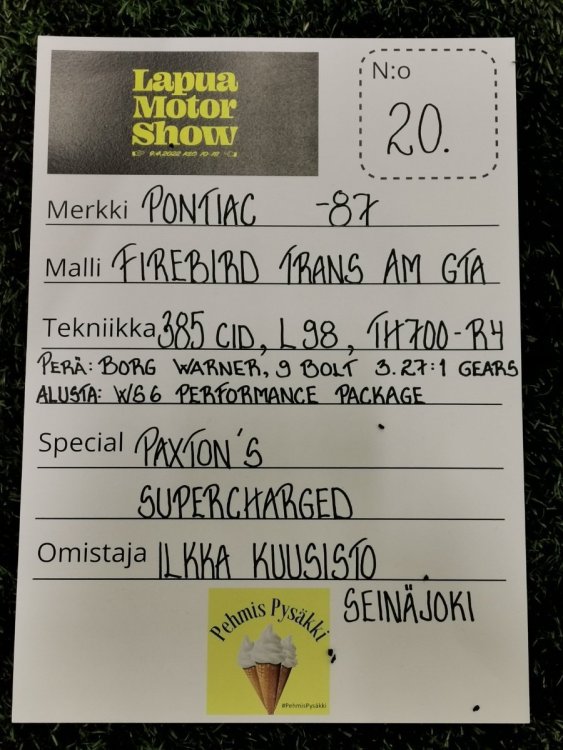 Lapua
Motor
Show
9.4.2022 KLO 10-18
N:o
20.
Merkki PONTIAC -87
Malli FIREBIRD TRANS AM GTA
Tekniikka 385 CID, L98, TH700-R4
PERÄ: BORG WARNER, 9 BOLT 3.27:1 GEARS
ALUSTA: WS6 PERFORMANCE PACKAGE
Special PAXTON'S
SUPERCHARGED
Omistaja ILKKA KUUSISTO
SEINÄJOKI
Pehmis Pysäkki
#PehmisPysäkki